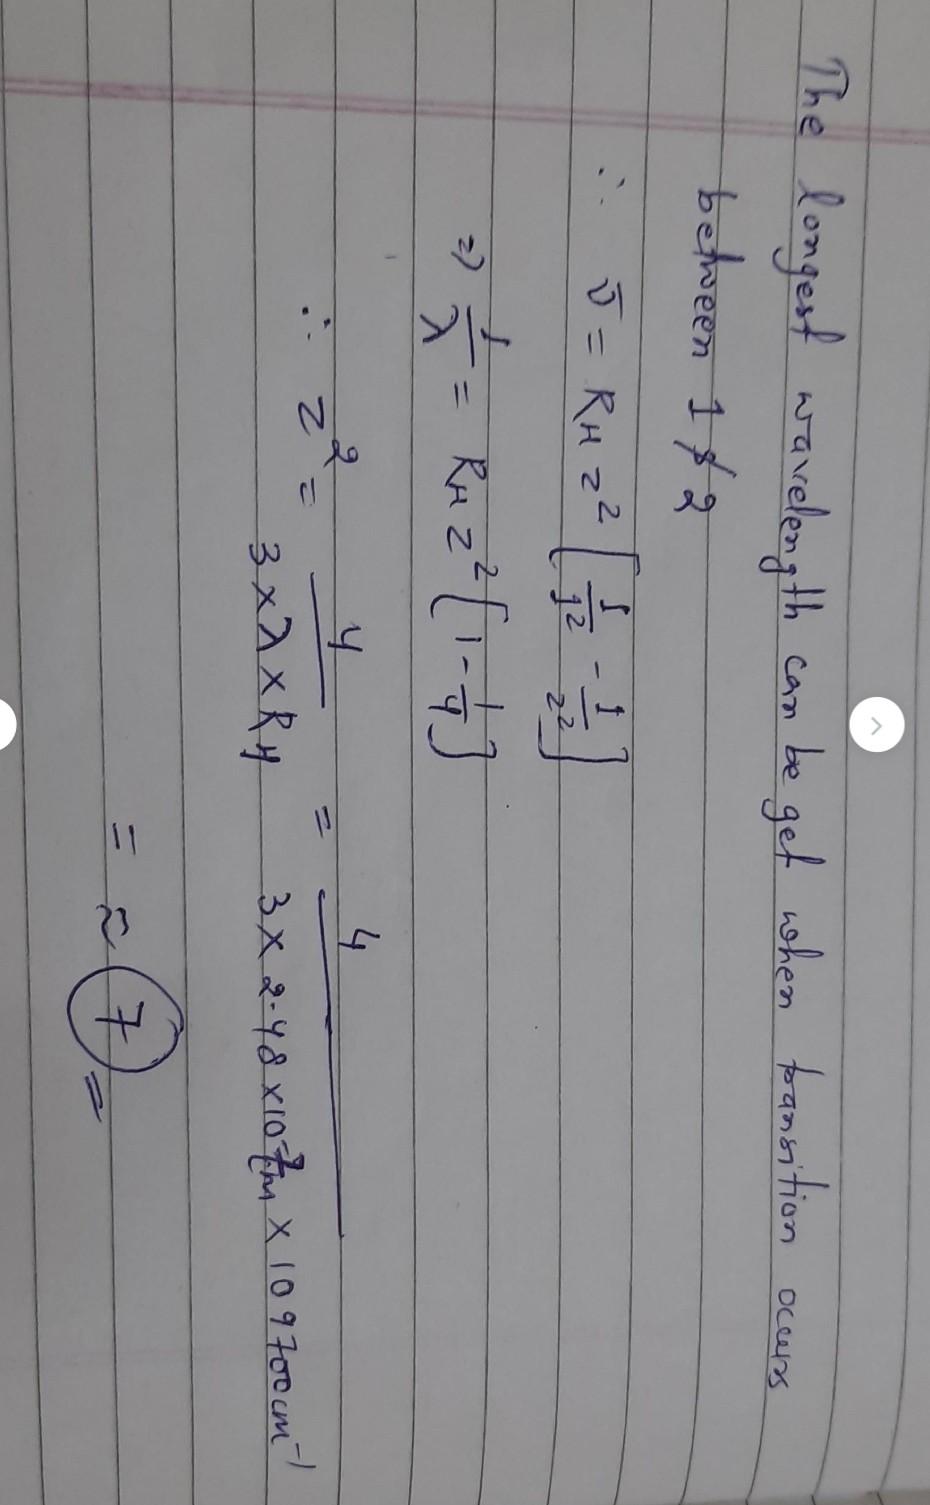 The longest wavelength can be get when transition occurs
between 1 & 2
∴ ν̄ = R_H z² [1/1² - 1/2²]
⇒ 1/λ = R_H z² [1 - 1/4]
∴ z² = 4/(3 × λ × R_H) = 4/(3 × 2.48 × 10⁻⁷cm × 109700cm⁻¹)
= ≈ 7 =